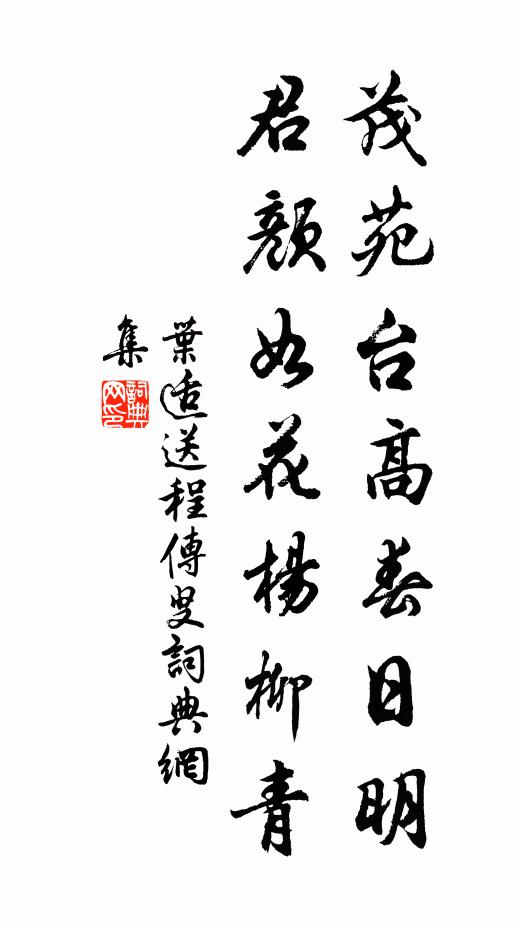 茂苑台高春日明
君顏如花楊柳青
葉适送程傳叟詞典網
集
詞典
网印